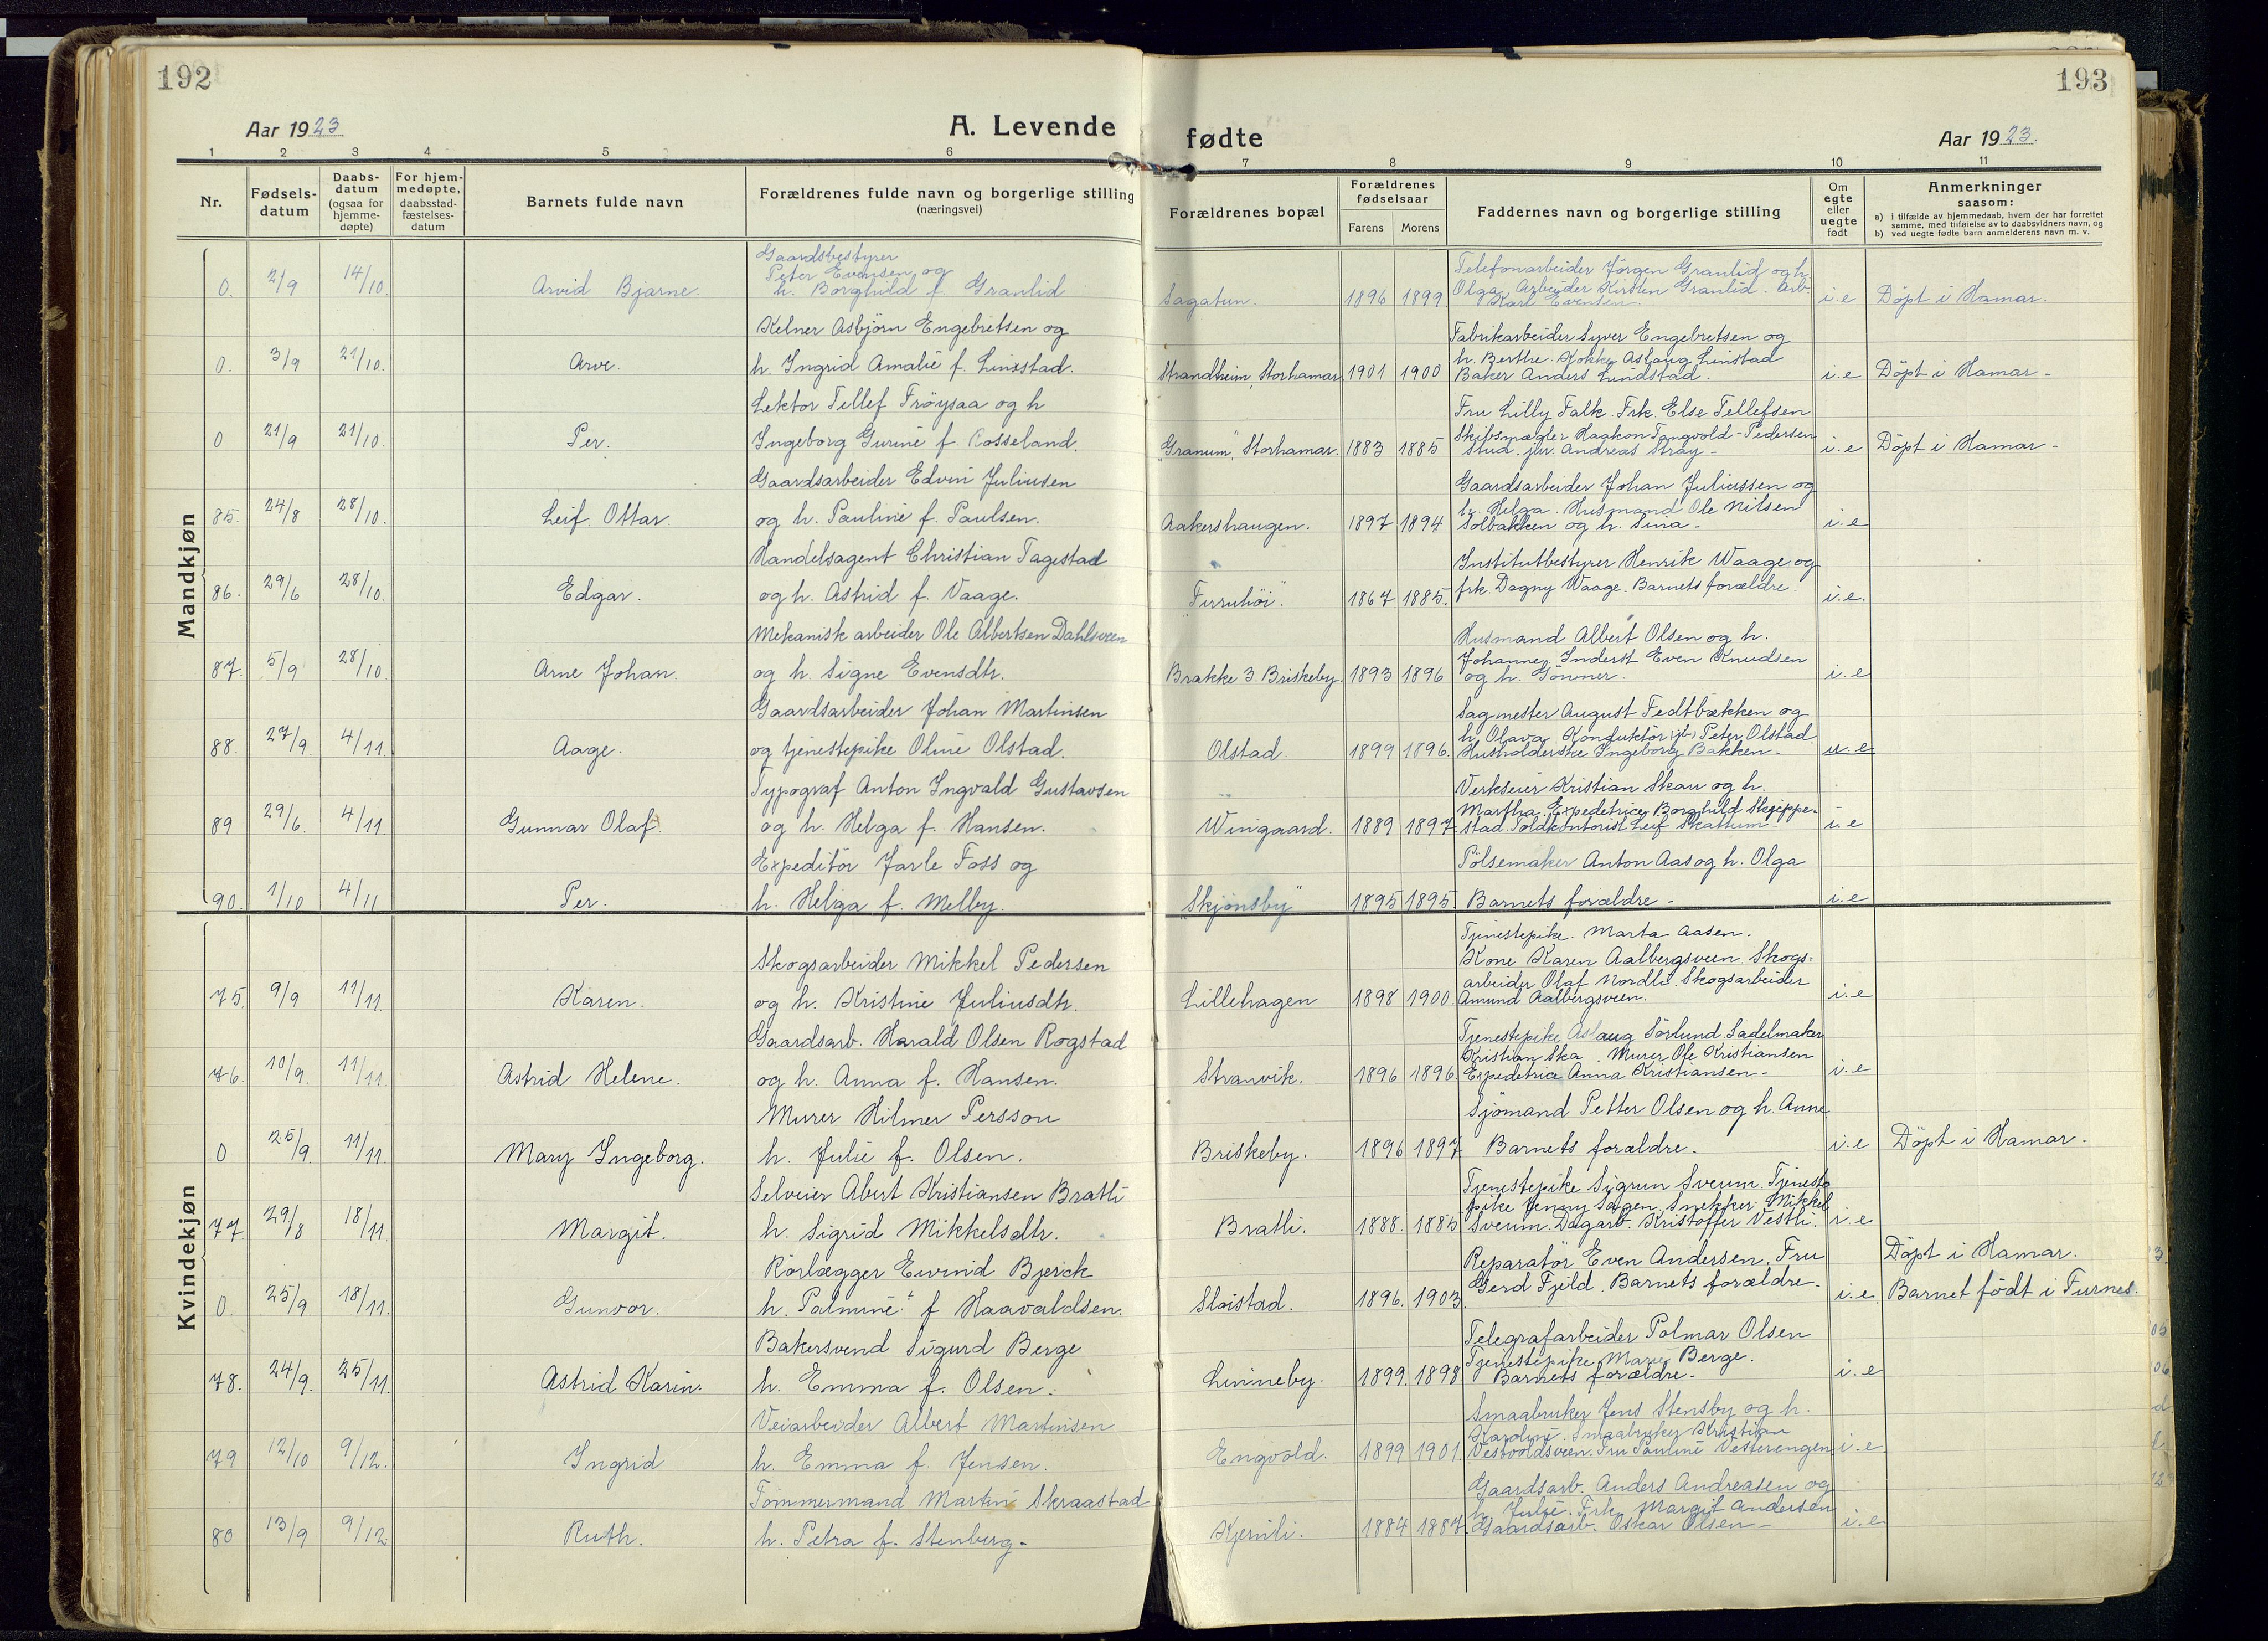 192
193
Aar 1923
A. Levende
fødte
Aar 1923.
1 2 3 4 5 6 7 8 9 10 11
Nr.
Fødsels-
datum
Daabs-
datum
(ogsaa for
hjemme-
døpte)
For hjem-
medøpte,
daabsstad-
fæstelses-
datum
Barnets fulde navn
Forældrenes fulde navn og borgerlige stilling
(næringsvei)
Forældrenes bopæl
Forældrenes
fødselsaar
Farens Morens
Faddernes navn og borgerlige stilling
Om
egte
eller
uegte
født
Anmerkninger
saasom:
a) i tilfælde av hjemmedaab, hvem der har forrettet
samme, med tilføielse av to daabsvidners navn, og
b) ved uegte fødte barn anmelderens navn m. v.
Mandkjøn
Gaardsbestyrer
Peter Evensen og
0. 2/9 14/10 Arvid Bjarne. h. Borghild f. Granlid
Sagatun. 1896 1899
Telefonarbeider Jörgen Granlid og h.
Olga, Arbeider Kirsten Granlid. Arb.
Karl Evensen.
i.e Döpt i Hamar.
Kelner Asbjörn Engebretsen og
0. 3/9 21/10. Arve. h. Ingrid Amalie f. Linstad.
Strandheim, Storhamar. 1901 1900
Fabrikarbeider Syver Engebretsen og
h. Berthe. Kokke Aslaug Linstad
Baker Anders Lindstad.
i.e Döpt i Hamar -
Lektor Tellef Fröysaa og h
0 21/9 21/10. Per. Ingeborg Gurine f. Cosseland.
"Granum", Storhamar. 1883 1885
Fru Lilly Falk. Frk. Else Tellefsen
Skibsmægler Haakon Tangvold-Pedersen
Stud. jur. Andreas Stray -
i.e Döpt i Hamar -
Gaardsarbeider Edvin Juliusen
85. 24/8 28/10. Leif Ottar. og h. Pauline f. Paulsen.
Aakershaugen. 1897 1894
Gaardsarbeider Johan Juliussen og
h. Helga. Husmand Ole Nilsen
Solbakken og h. Sina -
i.e
Handelsagent Christian Tagestad
86. 29/6 28/10. Edgar. og h. Astrid f. Vaage.
"Furuhöi". 1867 1885.
Institutbestyrer Henrik Waage og
frk. Dagny Waage. Barnets forældre.
i.e.
Mekanisk arbeider Ole Albertsen Dahlsveen
87. 5/9 28/10. Arne Johan. og h. Signe Evensdtr.
Brakke 3. Briskeby. 1893 1896
Husmand Albert Olsen og h.
Johanne, Inderst Even Knudsen
og h. Gönner.
i.e
Gaardsarbeider Johan Martinsen
88. 27/9. 4/11. Aage. og tjenestepike Oline Olstad.
Olstad. 1899 1896.
Sagmester August Fedtbækken og
h. Olava, Konduktör Peter Olstad
Husholderske Ingeborg Bakken -
u.e
Typograf Anton Ingvald Gustavsen
89 29/6. 4/11 Gunnar Olaf. og h. Helga f. Hansen.
Wingaard. 1889 1897
Verkseier Kristian Skau og h.
Martha. Expedetrice Borghild Skjeppe-
stad. Toldkontorist Leif Skattum -
i.e
Expeditör Jarle Foss og
90. 1/10 4/11 Per. h. Helga f. Melby.
"Skjönsby" 1895 1895
Pölsemaker Anton Aas og h. Olga
Barnets forældre -
i.e
Kvindekjøn
Skogsarbeider Mikkel Pedersen
75. 9/9 11/11 Karen. og h. Kristine Juliusdtr.
Lillehagen 1898 1900.
Tjenestepike. Marta Aasen.
Kone Karen Aalbergsveen. Skogs-
arbeider Olaf Nordli. Skogsarbeider
Amund Aalbergsveen.
i.e
Gaardsarb. Harald Olsen Rogstad
76. 10/9. 11/11. Astrid Helene. og h. Anna f. Hansen.
Stranvik. 1896 1896
Tjenestepike Aslaug Sörlund. Sadelmaker
Kristian Ska. Murer Ole Kristiansen
Expedetrice Anna Kristiansen -
i.e
Murer Hilmer Persson
0 25/9. 11/11. Mary Ingeborg. h. Julie f. Olsen.
Briskeby. 1896 1897
Sjömand Petter Olsen og h. Anne
Barnets forældre.
i.e Döpt i Hamar -
Selveier Abert Kristiansen Bratli
77. 29/8 18/11. Margit. h. Sigrid Mikkelsdtr.
Bratli. 1888. 1885
Tjenestepike Sigrun Sveum. Tjeneste
pike Jenny Sagen. Snekker Mikkel
Sveum. Dagarb. Kristoffer Vestli.
i.e
Rörlægger Eivind Bjerck
0. 25/9. 18/11. Gunvor. h. Palmine f Haavaldsen.
Sloistad. 1896. 1903
Reparatör Even Andersen. Fru
Gerd Fjeld. Barnets forældre -
i.e.
Döpt i Hamar.
Barnet födt i Furnes.
Bakersvend Sigurd Berge
78. 24/9. 25/11. Astrid Karin. h. Emma f. Olsen.
Linneby. 1899. 1898
Telegrafarbeider Polmar Olsen
Tjenestepike Marie Berge.
Barnets forældre -
i.e
Veiarbeider Albert Martinsen
79 12/10 9/12. Ingrid h. Emma f. Jensen.
Engvold. 1899 1901.
Smaabruker Jens Stensby og h.
Karoline. Smaabruker Kristian
Vestvoldsveen. Fru Pauline Vesterengen
i.e
Tömmermand Martin Skraastad
80 13/9 9/12 Ruth. h. Petra f. Stenberg -
Kjernli. 1884 1887
Gaardsarb. Anders Andreasen og
h. Julie. Frk. Margit Andersen
Gaardsarb. Oskar Olsen -
i.e